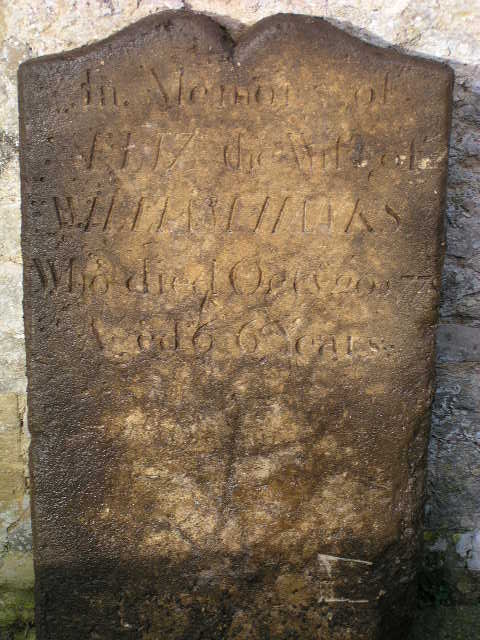 In Memory of
ELIZ the Wife of
WILLIAM
Who died Oct
Aged 66 Years